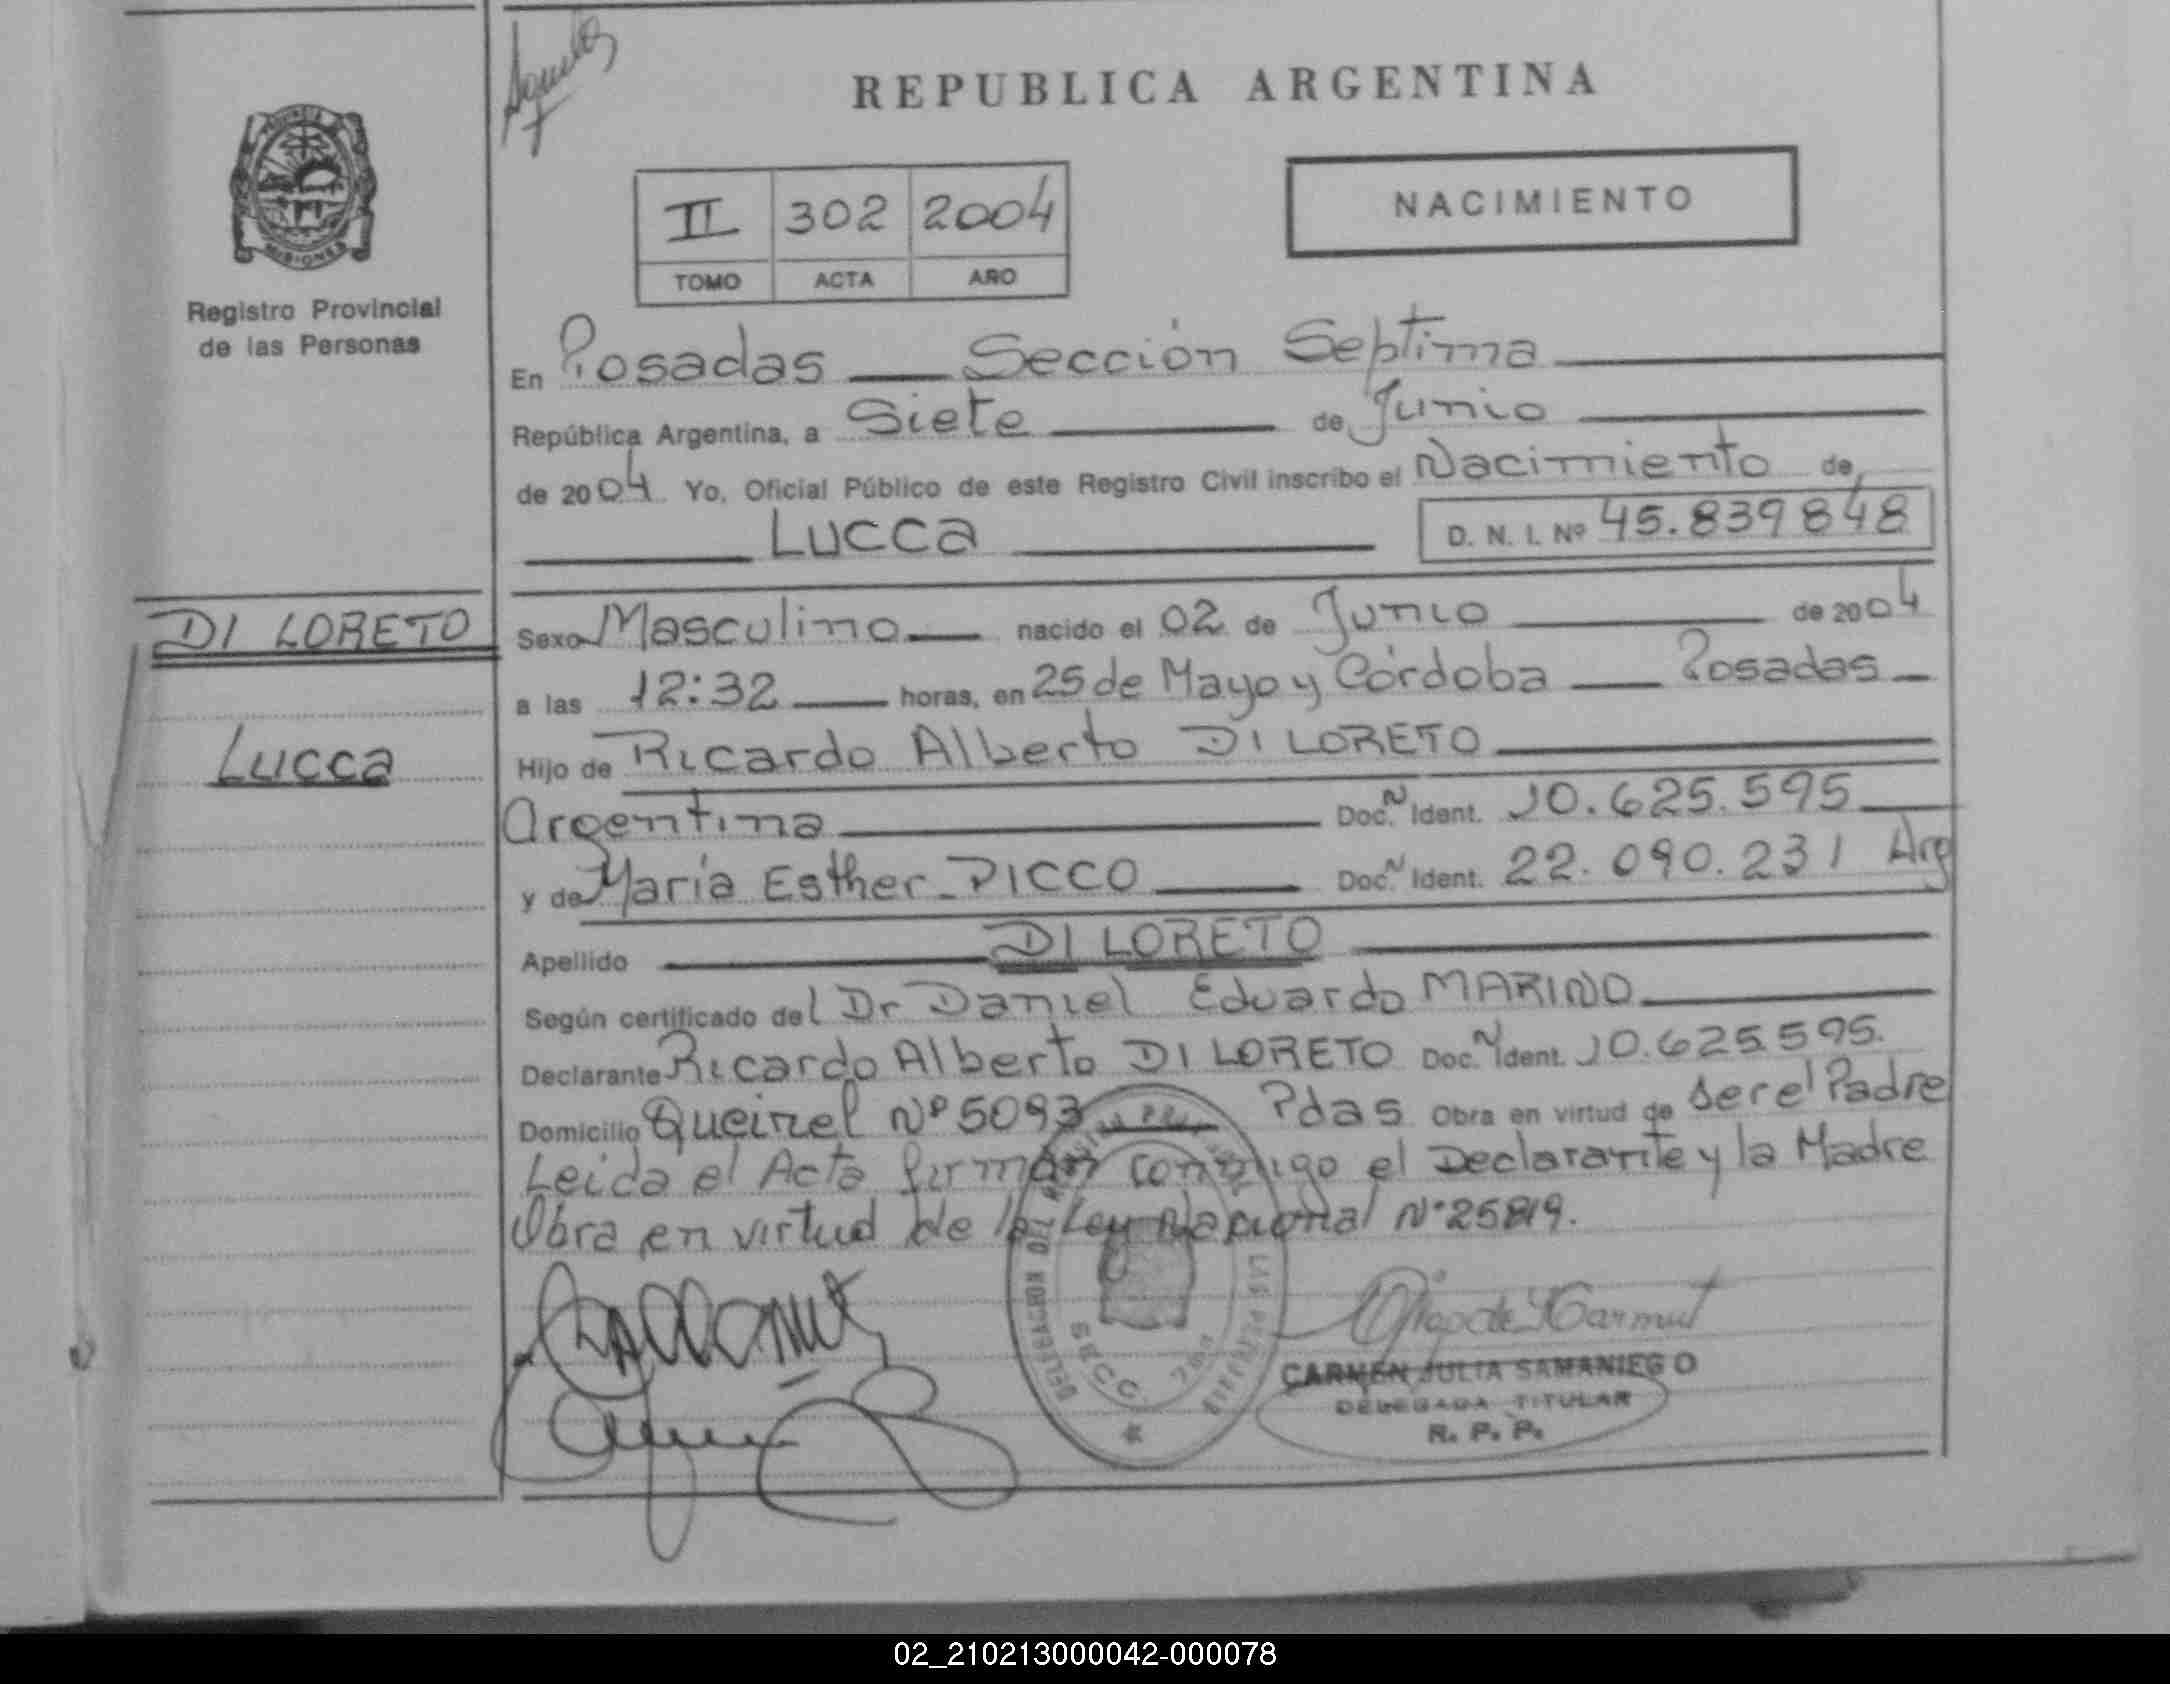 REPUBLICA ARGENTINA
PROVINCIA DE
MISIONES
Registro Provincial
de las Personas
II 302 2004
TOMO ACTA AÑO
NACIMIENTO
En Posadas — Sección Septima
República Argentina, a Siete de Junio
de 2004 Yo, Oficial Público de este Registro Civil inscribo el Nacimiento de
Lucca D. N. I. Nº 45.839848
DI LORETO
Lucca
Sexo Masculino nacido el 02 de Junio de 2004
a las 12:32 horas, en 25 de Mayo y Córdoba — Posadas
Hijo de Ricardo Alberto DI LORETO
Argentina Doc. N Ident. 10.625.595
y de María Esther PICCO Doc. N Ident. 22.090.231 Arg
Apellido DI LORETO
Según certificado del Dr Daniel Eduardo MARINO
Declarante Ricardo Alberto DI LORETO Doc. N Ident. 10.625.595.
Domicilio Queirel Nº 5093 Pdas Obra en virtud de ser el Padre
Leida el Acta firman conmigo el Declarante y la Madre
Obra en virtud de la Ley Nacional Nº 25819.
DELEGACION DEL
LAS PERSONAS
SECC. 7ma
CARMEN JULIA SAMANIEGO
DELEGADA TITULAR
R. P. P.
02_210213000042-000078